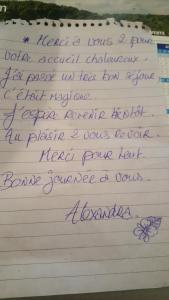 * Merci à vous 2 pour
votre accueil chaleureux.
J'ai passé un très bon séjour
c'était magique.
J'espère revenir bientôt.
Au plaisir 2 vous revoir.
Merci pour tout.
Bonne journée à vous.
Alexandra